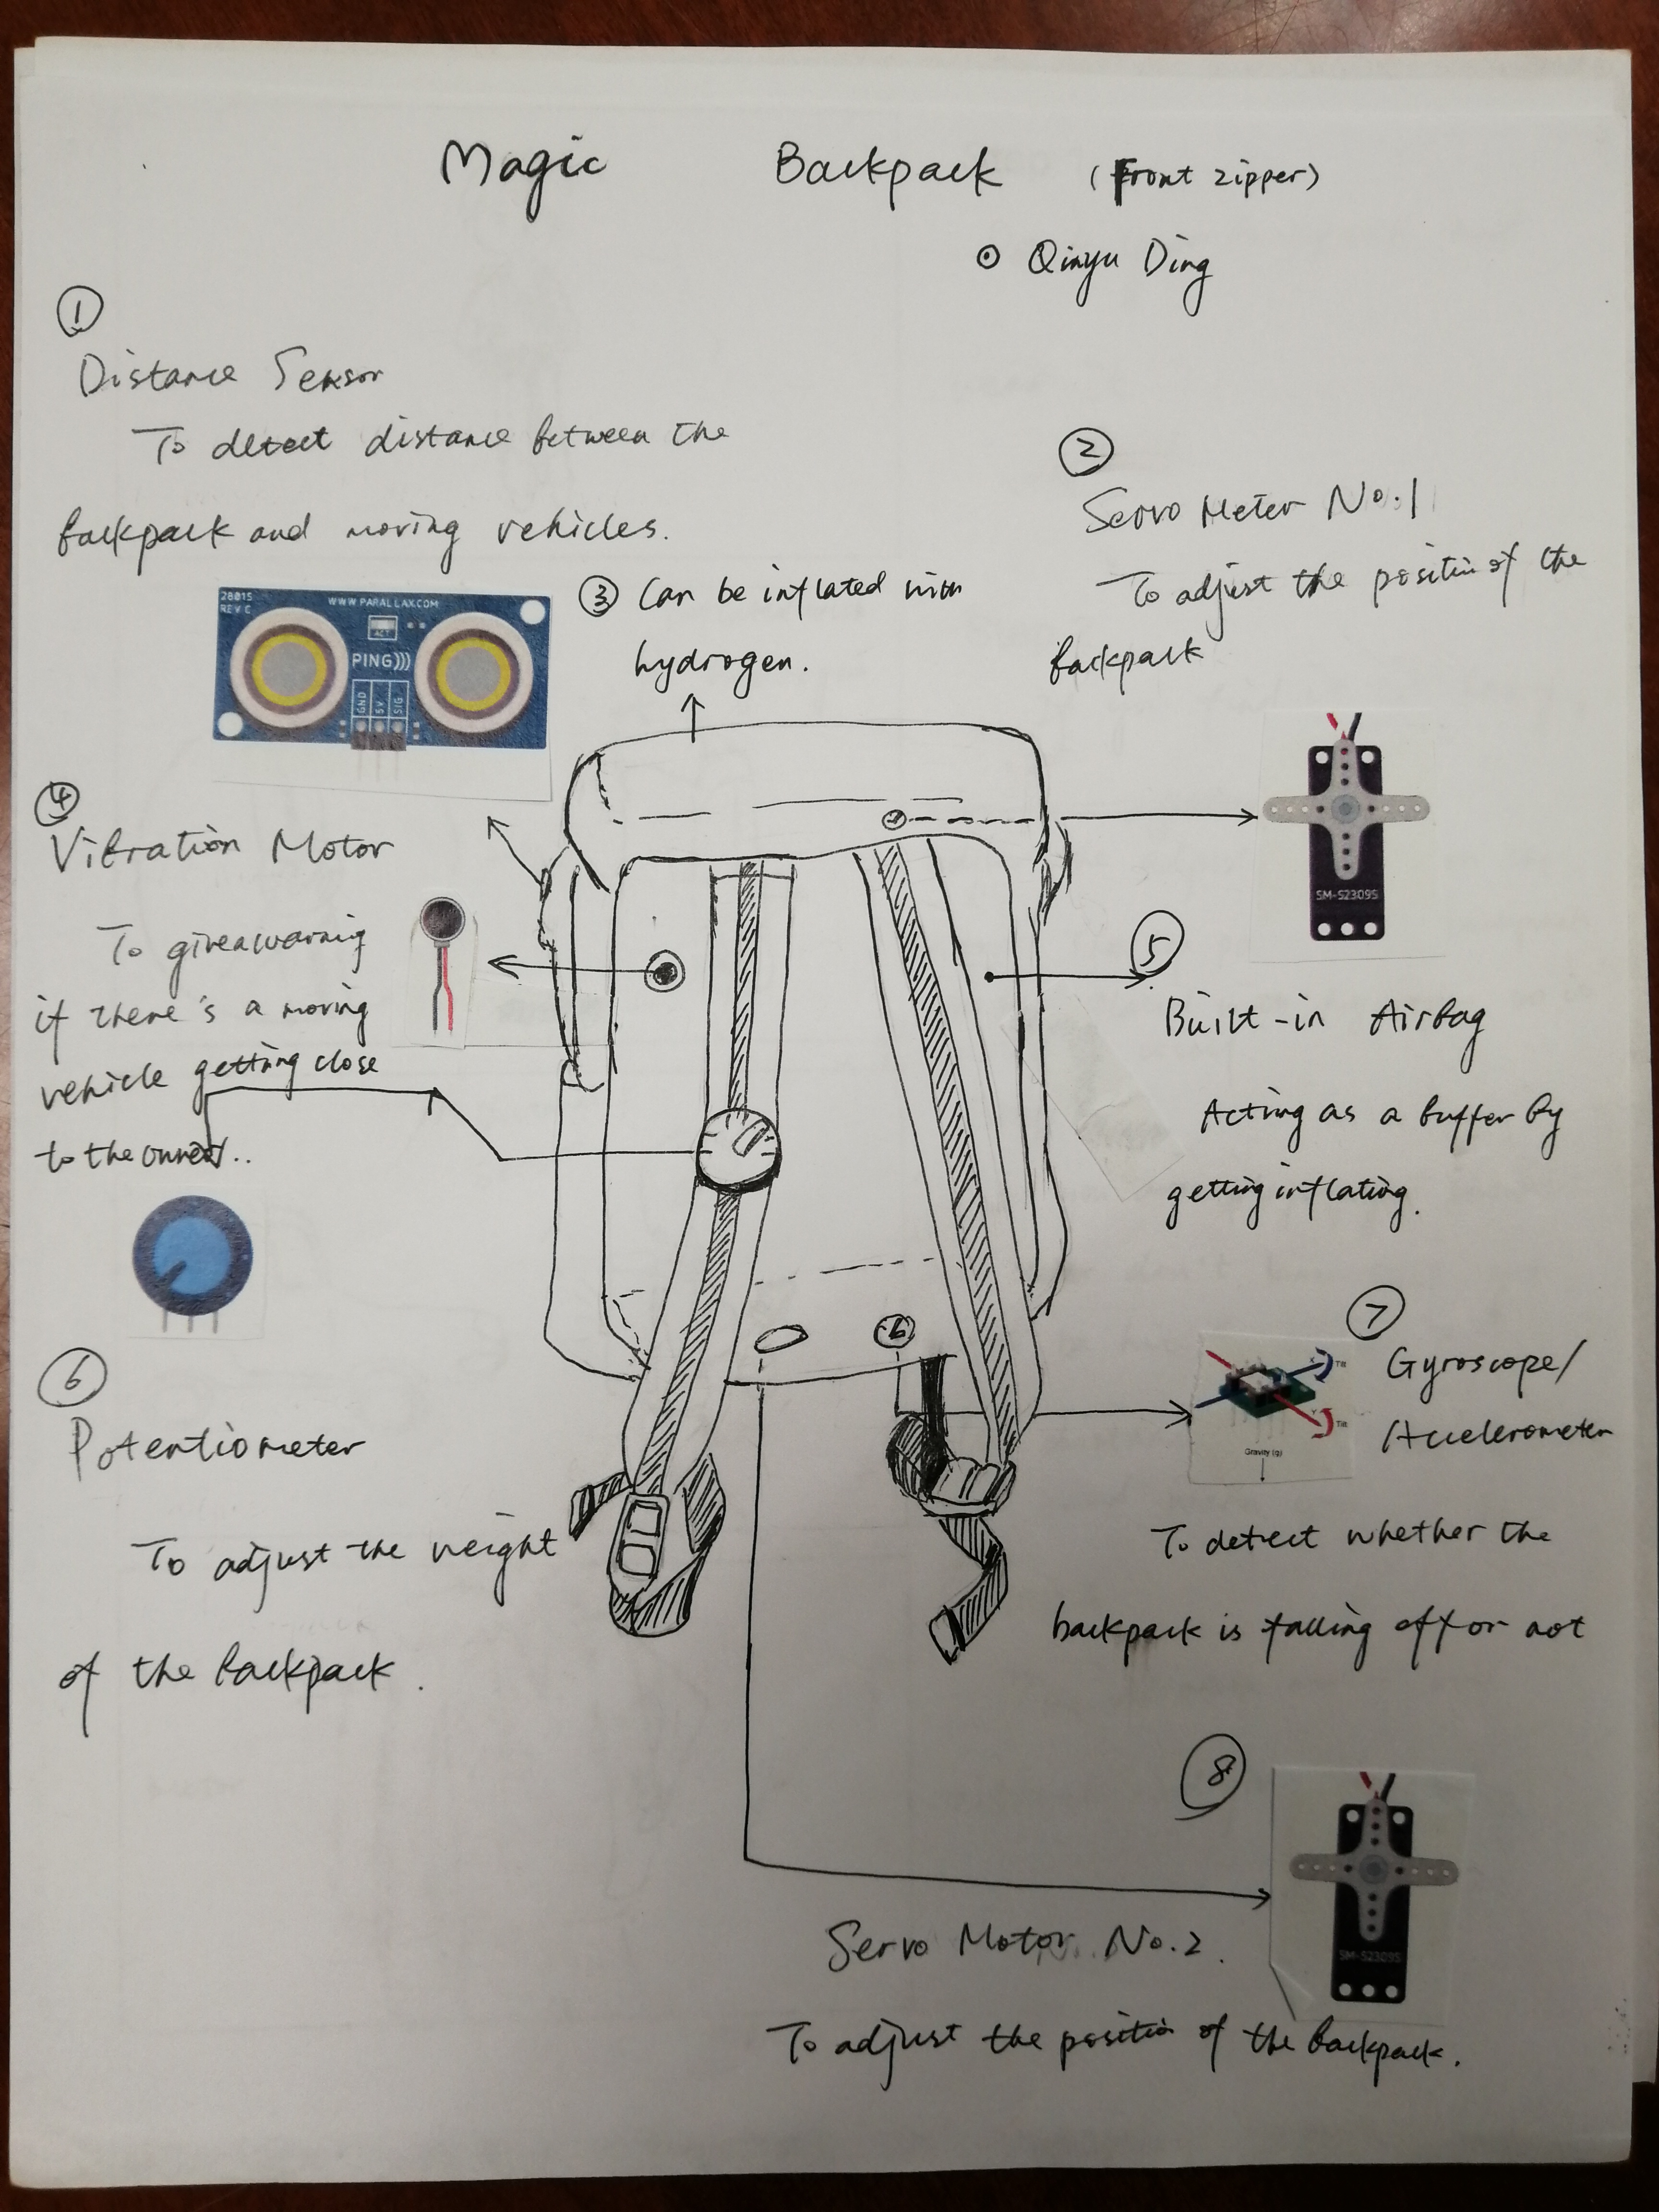 Magic Backpack (Front zipper)
⊙ Qinyu Ding
①
Distance Sensor
To detect distance between the
backpack and moving vehicles.
28015
REV C
WWW.PARALLAX.COM
ACT
PING)))
GND
5V
SIG
②
Servo Meter No.1
To adjust the position of the
backpack
③ Can be inflated with
hydrogen.
SM-S2309S
④
Vibration Motor
To give a warning
if there's a moving
vehicle getting close
to the owner..
⑤
Built-in Airbag
Acting as a buffer by
getting inflating.
⑥
Potentiometer
To adjust the weight
of the backpack.
⑥
⑦
Gyroscope/
Accelerometer
X
Tilt
Y
Tilt
Gravity (g)
To detect whether the
backpack is falling off or not
⑧
Servo Motor No.2.
SM-S2309S
To adjust the position of the backpack.